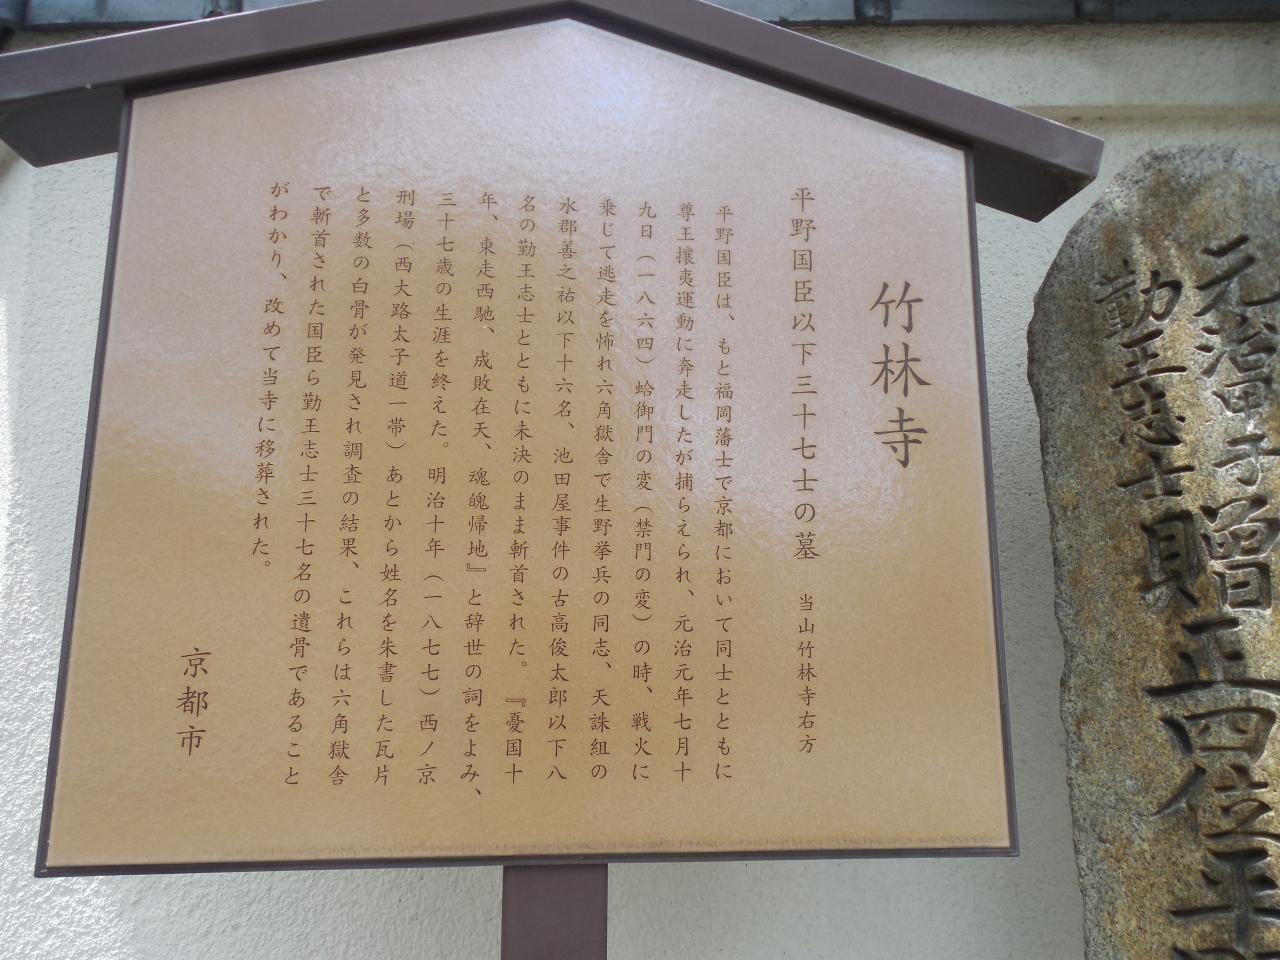 竹林寺
平野国臣以下三十七士の墓　当山竹林寺右方
平野国臣は、もと福岡藩士で京都において同士とともに
尊王攘夷運動に奔走したが捕らえられ、元治元年七月十
九日（一八六四）蛤御門の変（禁門の変）の時、戦火に
乗じて逃走を怖れ六角獄舎で生野挙兵の同志、天誅組の
水郡善之祐以下十六名、池田屋事件の古高俊太郎以下八
名の勤王志士とともに未決のまま斬首された。『憂国十
年、東走西馳、成敗在天、魂魄帰地』と辞世の詞をよみ、
三十七歳の生涯を終えた。明治十年（一八七七）西ノ京
刑場（西大路太子道一帯）あとから姓名を朱書した瓦片
と多数の白骨が発見され調査の結果、これらは六角獄舎
で斬首された国臣ら勤王志士三十七名の遺骨であること
がわかり、改めて当寺に移葬された。
京都市
元治甲子
勤王志士
贈正四位平